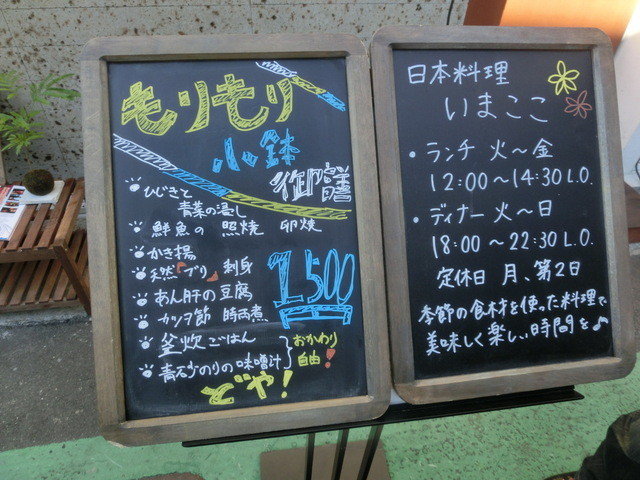 もりもり
小鉢
御膳
ひじきと
青菜の浸し
鮮魚の 照焼 卵焼
かき揚
天然「ブリ」刺身
あん肝の豆腐
カツヲ節 時雨煮
釜炊ごはん
青石少のりの味噌汁
おかわり
自由!
1,500
どや!
日本料理
いまここ
・ランチ 火〜金
12:00〜14:30 L.O.
・ディナー 火〜日
18:00〜22:30 L.O.
定休日 月、第2日
季節の食材を使った料理で
美味しく楽しい時間を♪